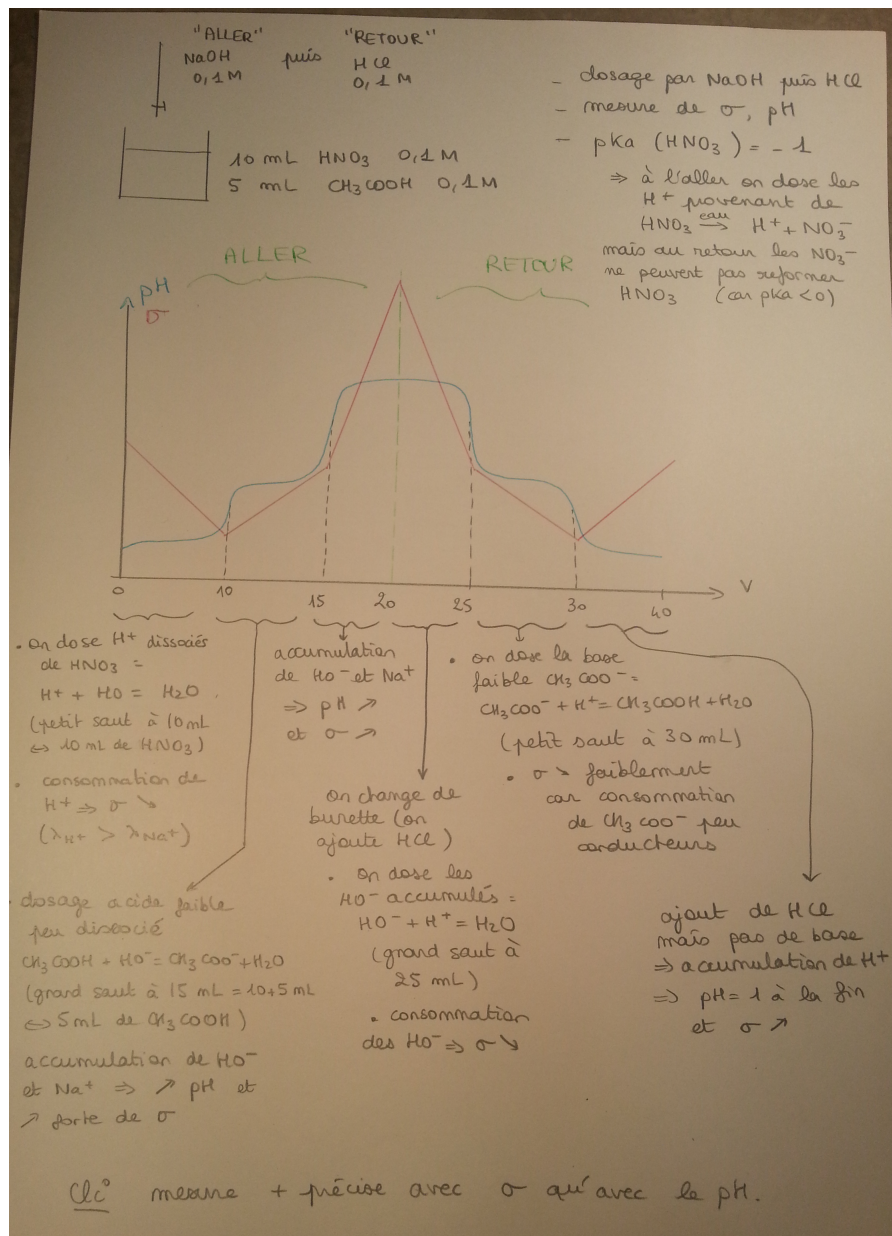 "ALLER" "RETOUR"
NaOH puis HCl
0,1 M 0,1 M
10 mL HNO3 0,1 M
5 mL CH3COOH 0,1 M
- dosage par NaOH puis HCl
- mesure de σ, pH
- pka (HNO3) = - 1
⇒ à l'aller on dose les
H+ provenant de
HNO3 eau→ H+ + NO3-
mais au retour les NO3-
ne peuvent pas reformer
HNO3 (car pka <0)
ALLER RETOUR
pH
σ
V
0 10 15 20 25 30 40
• on dose H+ dissociés
de HNO3 =
H+ + HO = H2O
(petit saut à 10mL
⇔ 10 mL de HNO3)
• consommation de
H+ ⇒ σ ↘
(λH+ > λNa+)
• dosage acide faible
peu dissocié
CH3COOH + HO- = CH3COO- + H2O
(grand saut à 15 mL = 10+5 mL
⇔ 5mL de CH3COOH)
accumulation de HO-
et Na+ ⇒ ↗ pH et
↗ forte de σ
accumulation
de HO- et Na+
⇒ pH ↗
et σ ↗
on change de
burette (on
ajoute HCl)
• on dose les
HO- accumulés =
HO- + H+ = H2O
(grand saut à
25 mL)
• consommation
des HO- ⇒ σ ↘
• on dose la base
faible CH3COO- =
CH3COO- + H+ = CH3COOH + H2O
(petit saut à 30 mL)
• σ ↘ faiblement
car consommation
de CH3COO- peu
conducteurs
ajout de HCl
mais pas de base
⇒ accumulation de H+
⇒ pH = 1 à la fin
et σ ↗
Clc° mesure + précise avec σ qu'avec le pH.